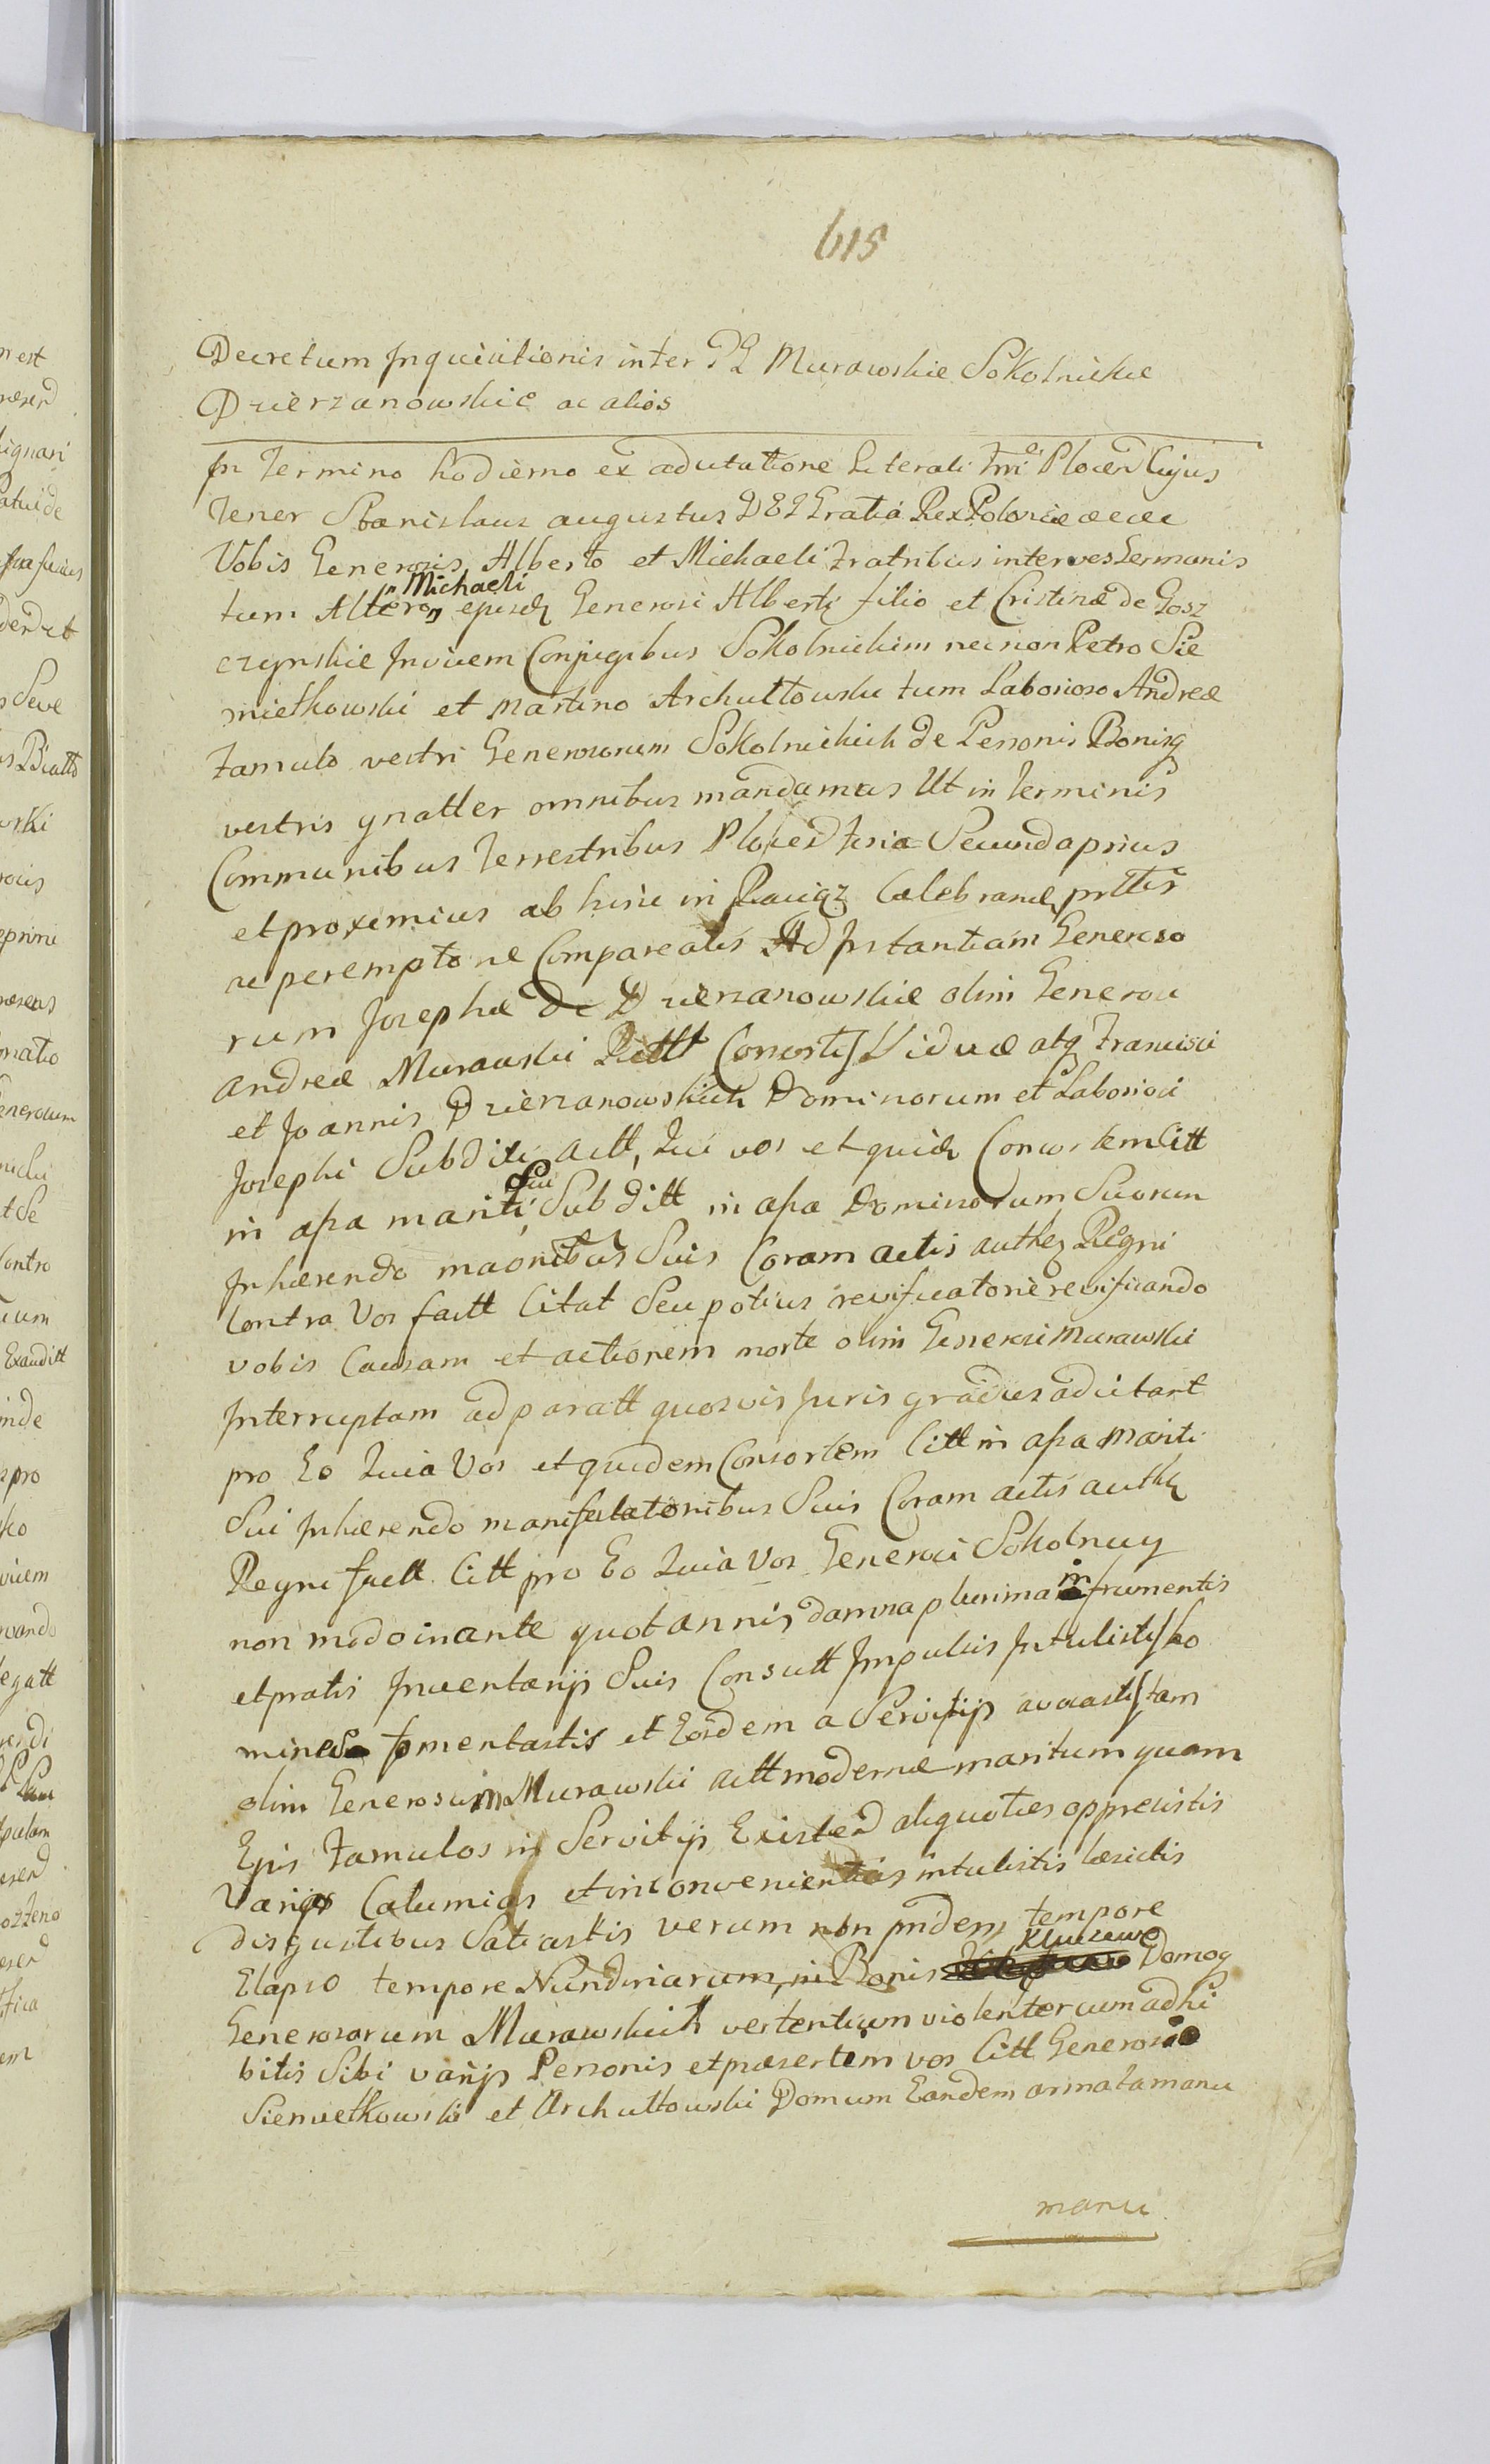 615
Decretum Inquisitionis inter GG Murawskie Sokolnickie
Dzierzanowskie ac alios
In Termino hodierno ex adcitatione Literali Trri Plocen Cujus
Tener Stanislaus augustus DEI Gratia Rex Poloniae
Vobis Generosis Alberto et Michaeli Fratribus inter ves Germanis
tum Altero Michaeli ejusd Generosi Alberti filio et Cristinæ de Gosz
czynskie Invicem Conjugibus Sokolnickim necnon Petro Sie
mietkowski et Martino Archuttowski tum Laborioso Andreæ
Famulo vestri Generosorum Sokolnickich de Personis Bonisq
vestris gnatter omnibus mandamus Ut in Terminis
Communibus Terrestribus Plocen Feria Secunda prius
et proximius ab hinc in Raciąz Celebrand prttr
ac peremptorie Compareatis Ad Instantiam Generoso
rum Josephæ de Dzierzanowskie olim Generosi
Andreæ Murawski Rettt Consortis Viduæ atq Francisci
et Joannis Dzierzanowskich Dominorum et Laboriosi
Josephi Subditi actt, Qui vos et quid Consortem Citt
in assa mariti Sui Subditt in assa Dominorum Suorum
Inhærendo maonibus Suis Coram actis authez Regni
Contra Vos factt Citat Seu potius revificatorie revificando
vobis Causam et actionem morte olim Generosi Murawski
Interruptam ad paratt quosvis Juris gradus adcitant
pro Eo Quia Vos et quidem Consortem Citt in assa Mariti
Sui Inhærendo manifestationibus Suis Coram actis auth
Regni factt Citt pro Eo Quia Vos Generosi Sokolnicy
non modo in ante quotannis damna plurima in frumentis
et pratis Inventarijs Suis Consultt Impulsis Intulistis ho
mines fomentastis et Eosdem a Servitijs avocastis tam
olim Generosum Murawski actt modernæ maritum quam
Ejus Famulos in Servitijs Existen aliquoties oppressistis
Varias Calumias et inconvenientias intulistis læsistis
disgustibus Satiastis verum non pridem tempore
Elapso tempore Nundinarum, in Bonis Kluszewo Domoq
Generosorum Murawskich vertentium violenter cum adhi
bitis Sibi varijs Personis et præsertim vos Citt Generosi
Siemietkowski et Archuttowski Domum Eandem armata manu
manu